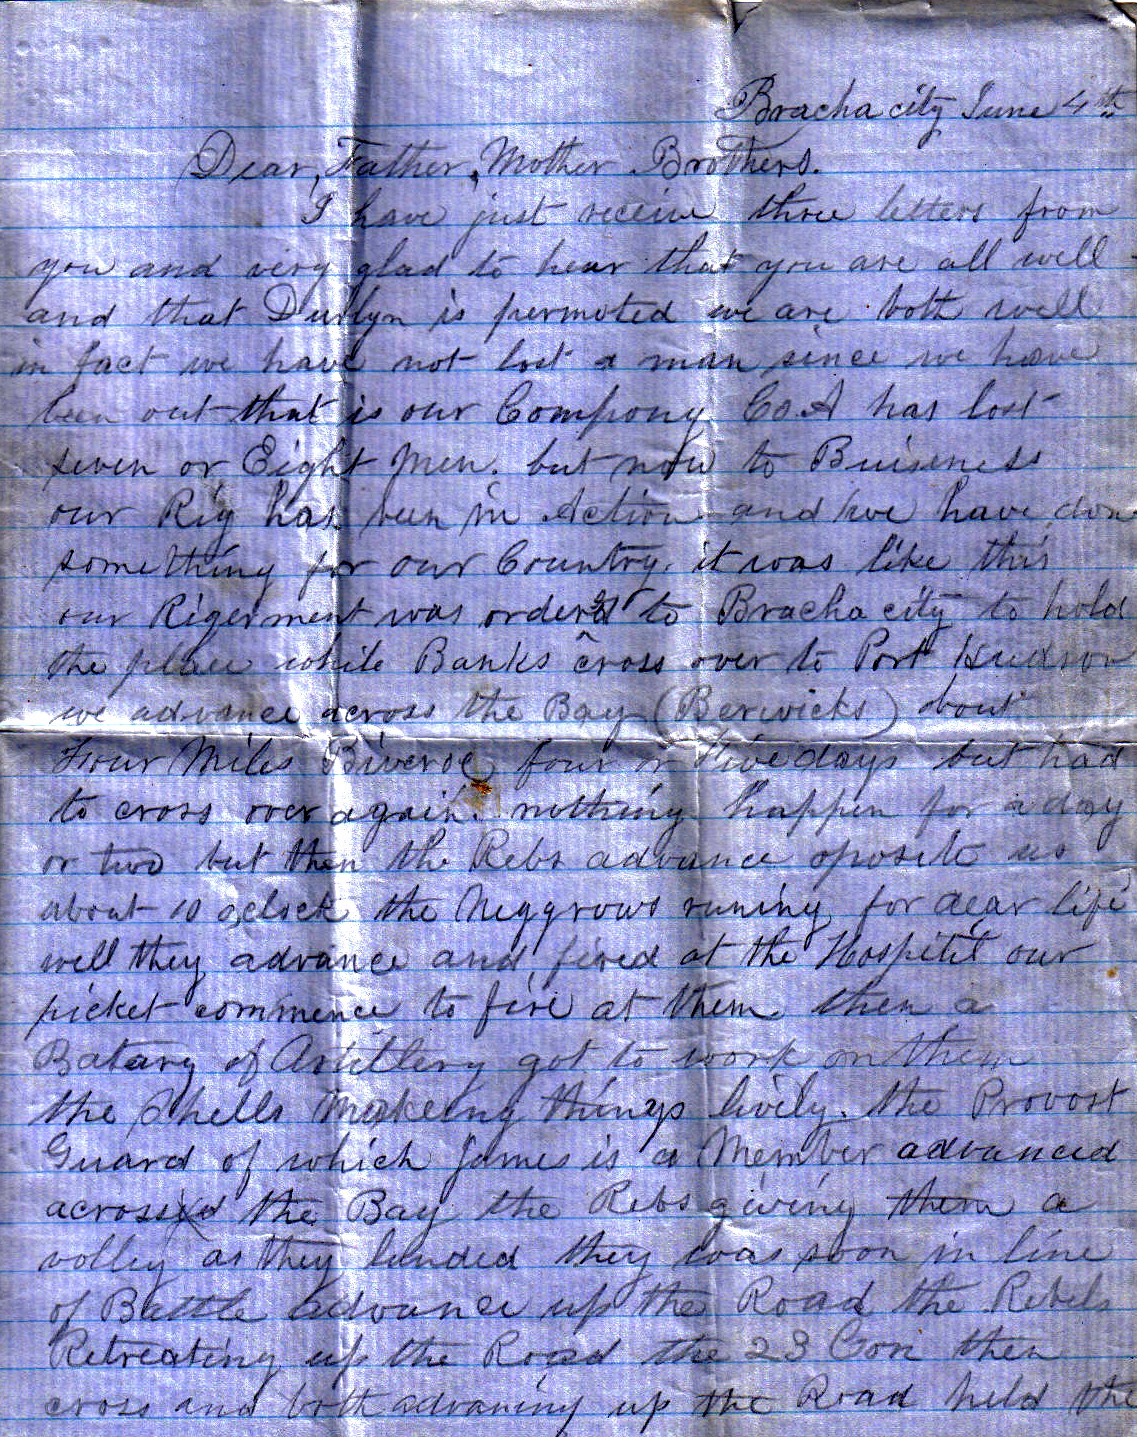 Bracha city June 4th
Dear, Father, Mother Brothers.
I have just receive three letters from
you and very glad to hear that you are all well
and that is permoted we are both well
in fact we have not lost a man since we have
been out that is our Company Co. A has lost
seven or Eight Men. but now to Buiseness
our Rig has been in Action and we have done
something for our Country. it was like this
our Rigerment was orderd to Bracha city to hold
the place while Banks cross over to Port Hudson
we advance across the Bay (Berwicks) about
Four Miles four or Five days but had
to cross over again. nothing happen for a day
or two but then the Rebs advance oposite us
about 10 oclock the Neggrows runing for dear life
well they advance and fired at the Hospitit our
picket commence to fire at them then a
Batary of Artillery got to work on them
the Shells Makeing things lively. the Provost
Guard of which James is a Member advanced
across the Bay the Rebs giving them a
volley as they landed they was soon in line
of Battle advance up the Road the Rebels
Retreating up the Road the 23 Con then
cross and both advaning up the Road held the